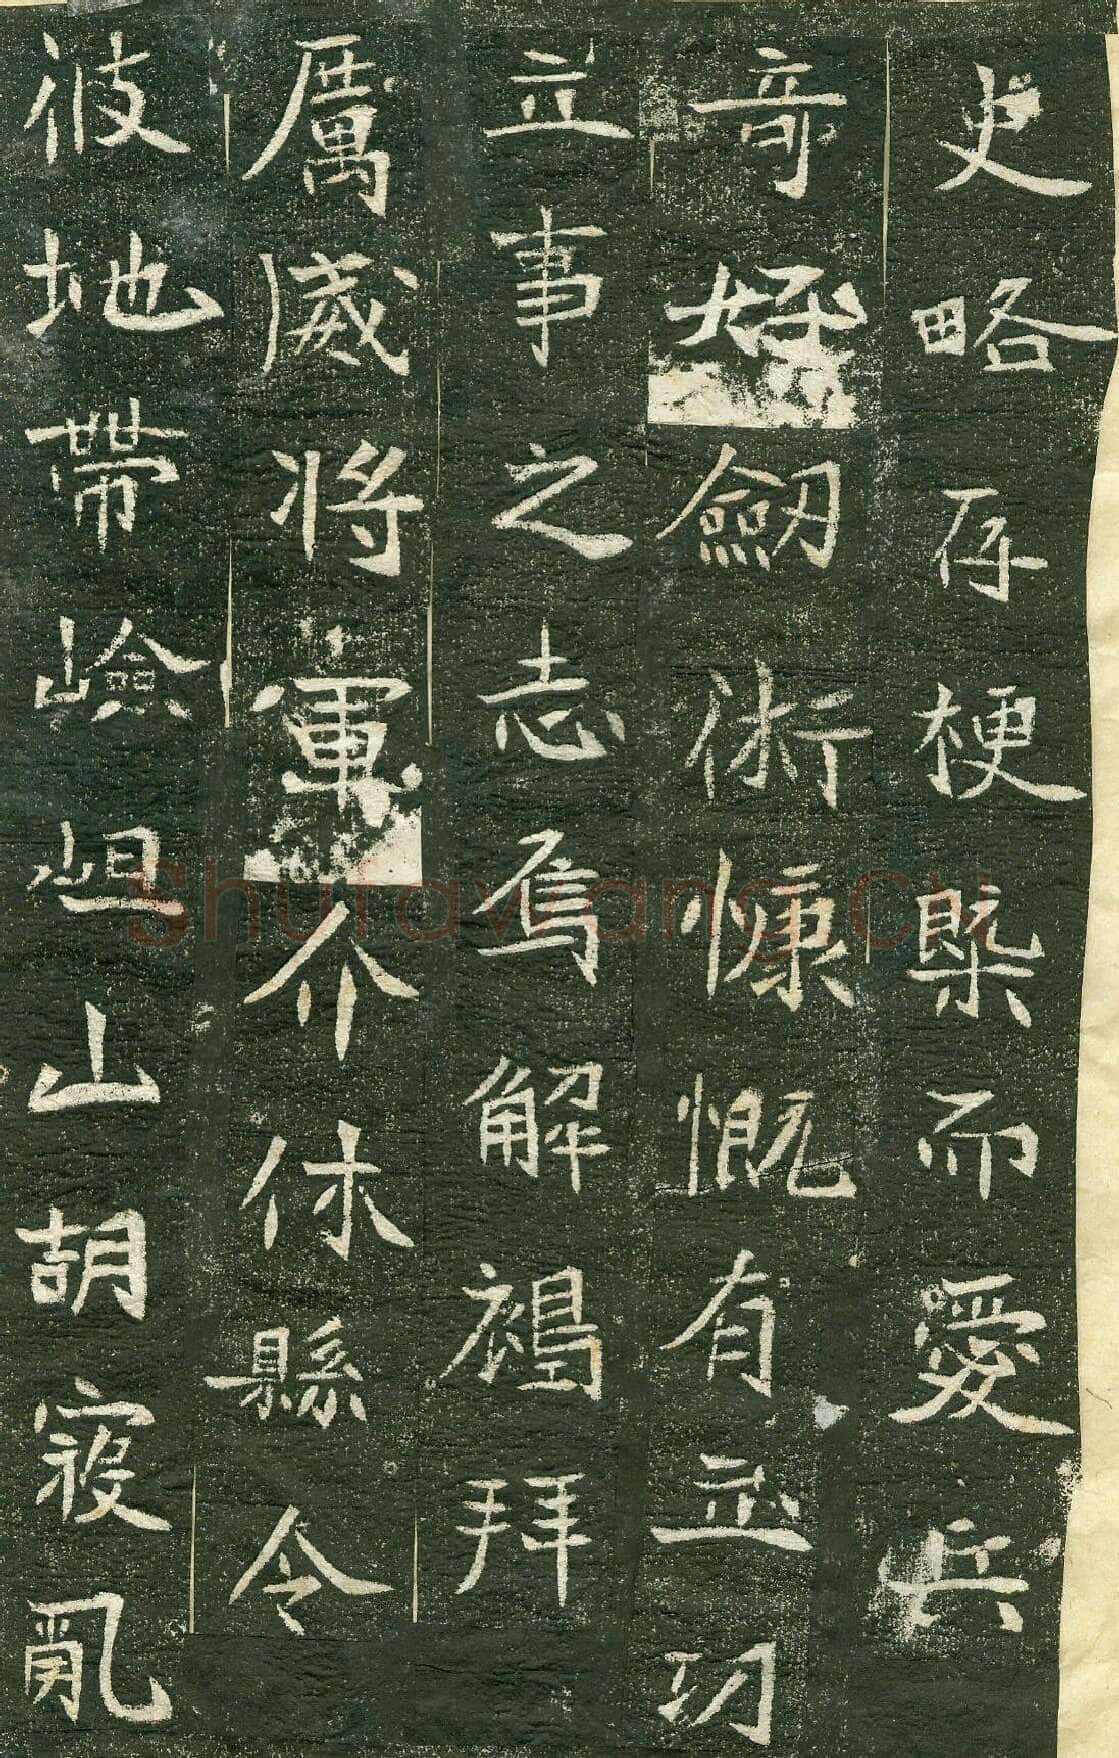 史略存梗槩而愛兵
奇好劒術慷慨有立功
立事之志焉解褐拜
厲威將軍介休縣令
彼地帶嶮岨山胡寇亂
Shufawang.cn